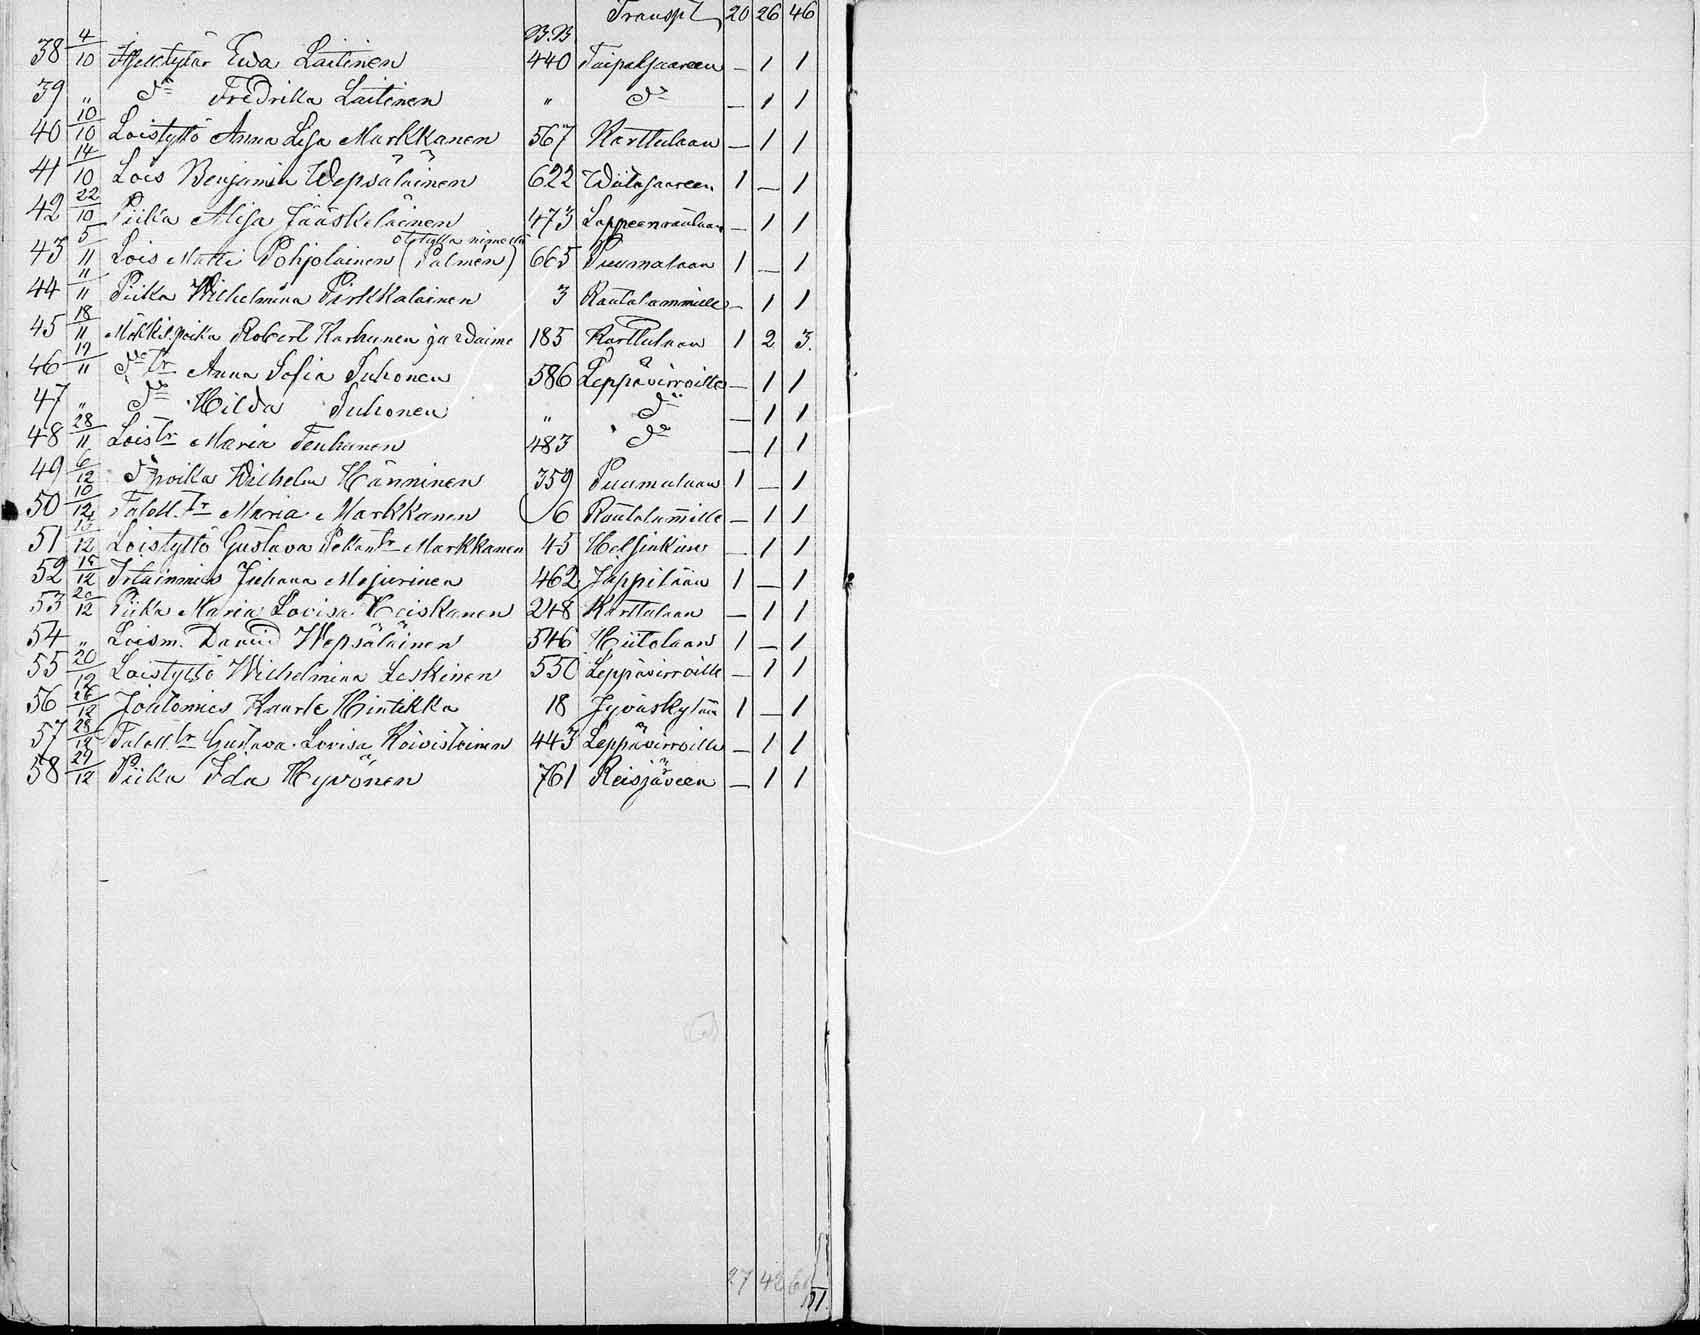 Transpt 20 26 46
B.B.
38 4/10 Itsell.tytär Ewa Laitinen 440 Taipalsaareen — 1 1
39 " do Fredrika Laitinen " do — 1 1
40 10/10 Loistyttö Anna Lisa Markkanen 567 Karttulaan — 1 1
41 14/10 Lois Benjamin Wepsäläinen 622 Wiitasaareen 1 — 1
42 22/10 Piika Alisa Jääskeläinen 473 Lappeenrantaan — 1 1
43 5/11 Lois Matti Pohjolainen (otetulla nimellä Palmen) 665 Puumalaan 1 — 1
44 11/11 Piika Wilhelmina Pirkkalainen 3 Rautalammille — 1 1
45 18/11 Mökkil.poika Robert Karhunen ja waimo 185 Karttulaan 1 2 3.
46 19/11 do tr Anna Sofia Tuhonen 586 Leppävirroille — 1 1
47 " do Hilda Tuhonen " do — 1 1
48 28/11 Lois tr Maria Tenhunen 483 do — 1 1
49 6/12 do poika Wilhelm Hänninen 359 Puumalaan 1 — 1
50 10/12 Taloll. Tr Maria Markkanen 6 Rautalammille — 1 1
51 13/12 Loistyttö Gustava Pekan tr Markkanen 45 Helsinkiin — 1 1
52 15/12 Irtainmies Juhana Mojurinen 462 Jäppilään 1 — 1
53 20/12 Piika Maria Lovisa Heiskanen 248 Karttulaan — 1 1
54 " Loism. David Wepsäläinen 546 Hiitolaan 1 — 1
55 20/12 Loistyttö Wilhelmina Leskinen 550 Leppävirroille — 1 1
56 28/12 Joutomies Kaarle Hintikka 18 Jyväskylään 1 — 1
57 28/12 Taloll. tr Gustava Lovisa Koivistoinen 443 Leppävirroille — 1 1
58 29/12 Piika Ida Hyvönen 761 Reisjäveen — 1 1
27 42